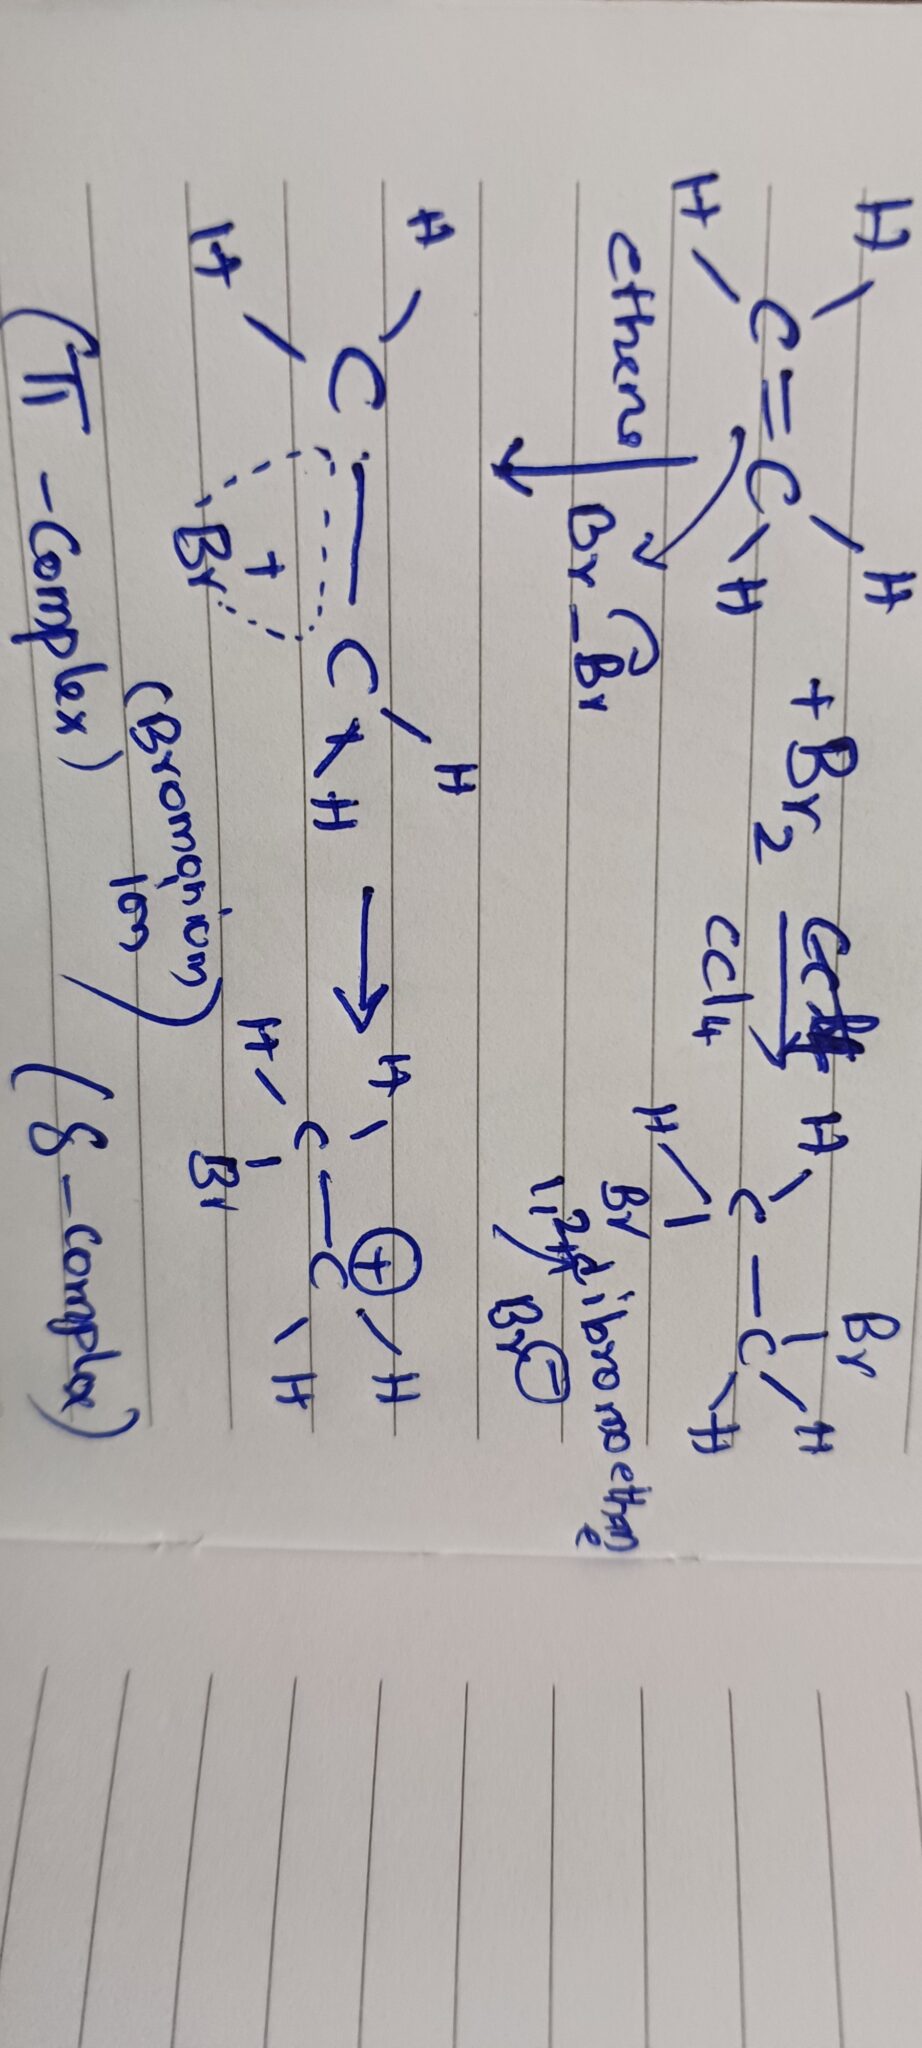 H H H Br
C = C + Br2 CCl4 C - C
H H H Br H
ethene Br - Br 1,2 dibromoethane
Br⊖
H H H ⊕ H
C — C → C - C
H Br + H H Br H
(Bromonium ion)
(π - Complex) (δ - complex)